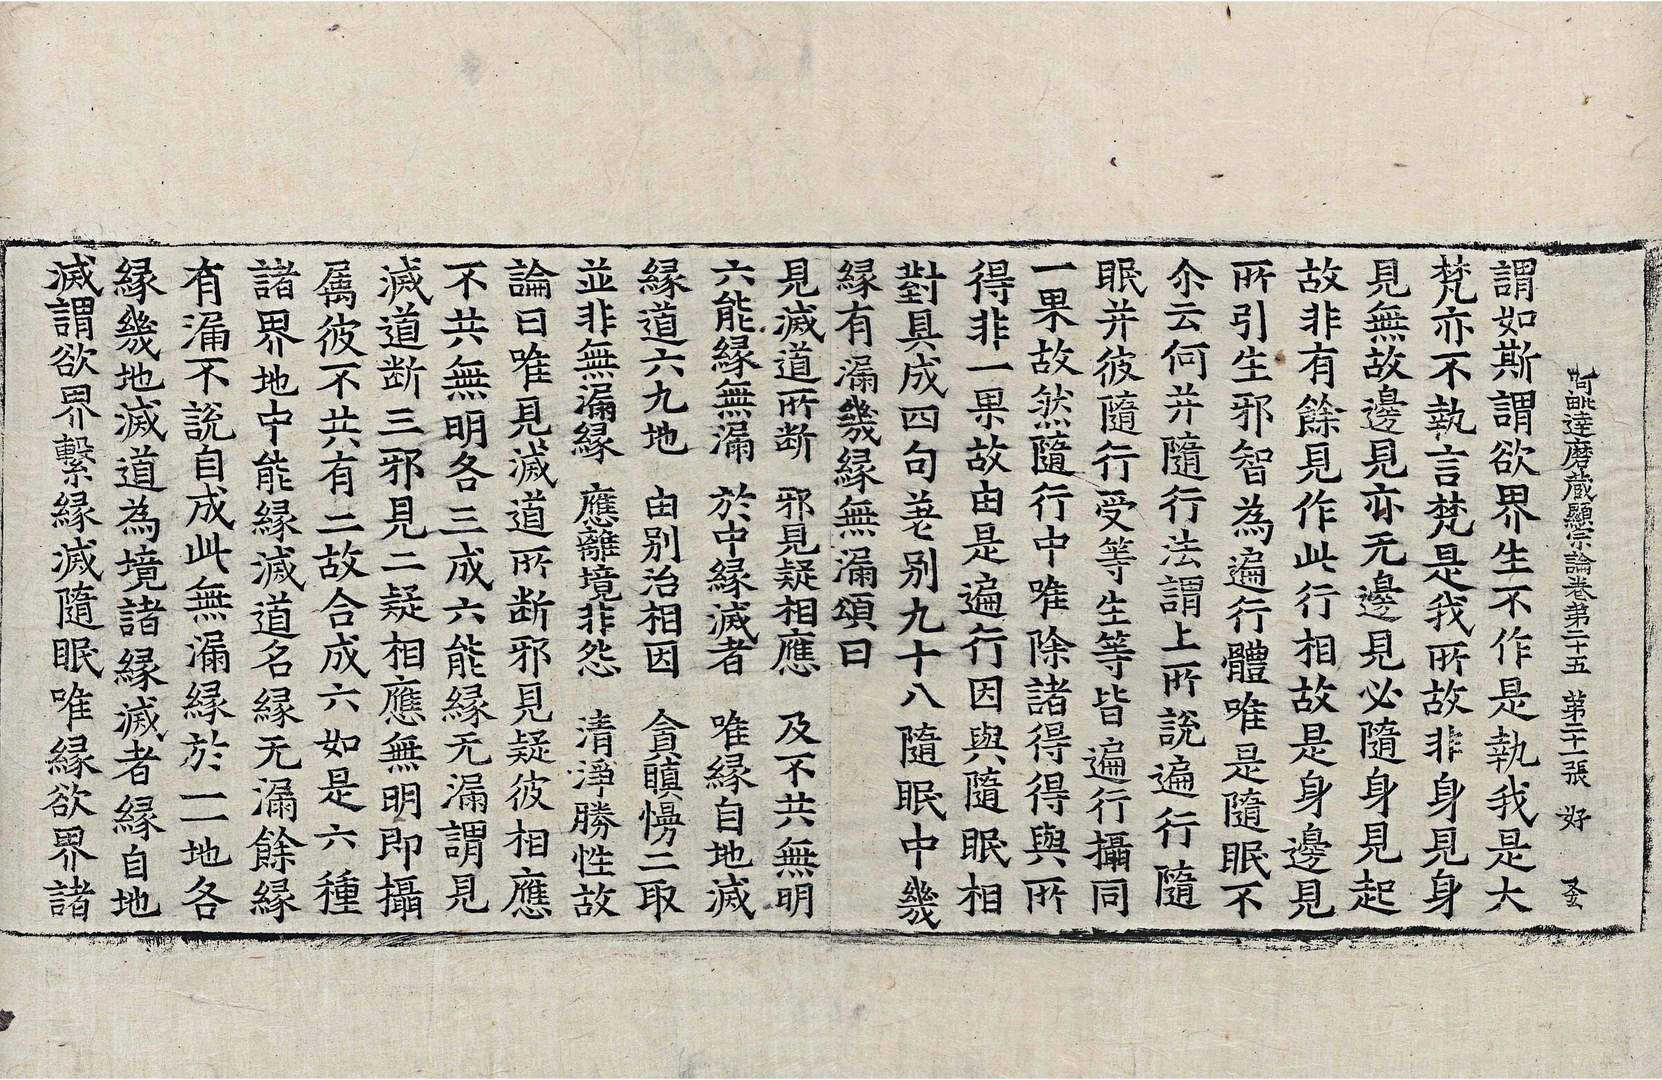 阿毗達磨藏顯宗論卷第二十五 第二十一張 好
謂如斯謂欲界生不作是執我是大
梵亦不執言梵是我所故非身見身
見無故邊見亦无邊見必隨身見起
故非有餘見作此行相故是身邊見
所引生邪智為遍行體唯是隨眠不
尒云何并隨行法謂上所說遍行隨
眠并彼隨行受等生等皆遍行攝同
一果故然隨行中唯除諸得得與所
得非一果故由是遍行因與隨眠相
對具成四句差別九十八隨眠中幾
緣有漏幾緣無漏頌曰
見滅道所断 邪見疑相應 及不共無明
六能緣無漏 於中緣滅者 唯緣自地滅
緣道六九地 由別治相因 貪瞋慢二取
並非無漏緣 應離境非怨 清淨勝性故
論曰唯見滅道所断邪見疑彼相應
不共無明各三成六能緣无漏謂見
滅道断三邪見二疑相應無明即攝
屬彼不共有二故合成六如是六種
諸界地中能緣滅道名緣无漏餘緣
有漏不說自成此無漏緣於一一地各
緣幾地滅道為境諸緣滅者緣自地
滅謂欲界繫緣滅隨眠唯緣欲界諸